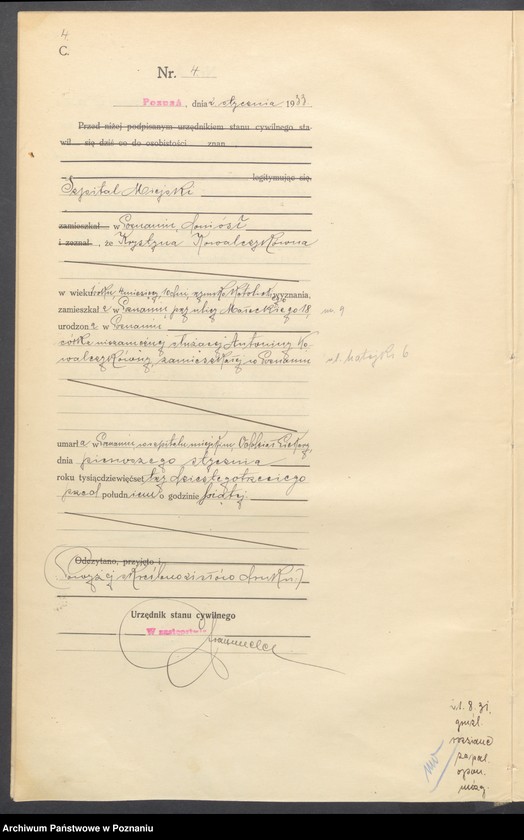 4.
C.
Nr. 4.
Poznań, dnia 2 stycznia 1933
Przed niżej podpisanym urzędnikiem stanu cywilnego sta-
wił się dziś co do osobistości znan
legitymując się
Szpital Miejski
zamieszkał w Poznaniu, doniósł
i zeznał, że Krystyna Kowalczykówna
w wieku roku, 4 miesięcy, 10 dni, rzymsko katolickiego wyznania,
zamieszkała w Poznaniu, przy ulicy Małeckiego 18
urodzona w Poznaniu
córka niezamężnej służącej Antoniny Ko-
walczykówny, zamieszkałej w Poznaniu
ul. Matejki 6
umarła w Poznaniu, w szpitalu miejskim,
dnia pierwszego stycznia
roku tysiącdziewięćset trzydziestego trzeciego
przed południem o godzinie piątej
Odczytano, przyjęto i
Powyżej skreślono druku
Urzędnik stanu cywilnego
W zastępstwie
8. 31.
gruźl.
zapal.
opon
mózg.
Archiwum Państwowe w Poznaniu